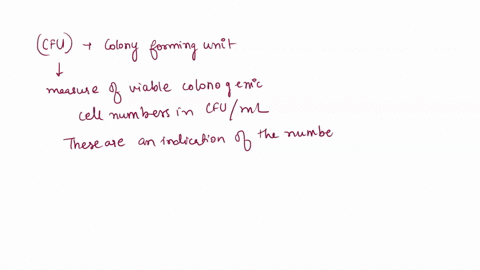 (CFU) → Colony forming unit
↓
measure of viable colonogenic
cell numbers in CFU/mL
These are an indication of the numbe